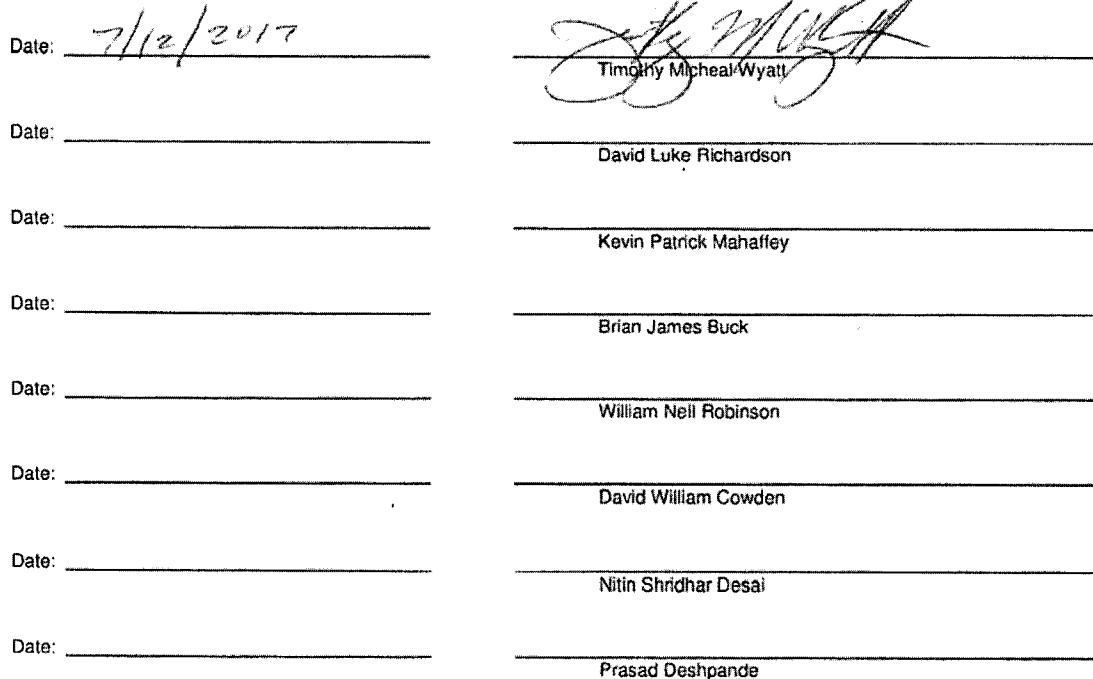 Date: 7/12/2017
Timothy Micheal Wyatt
Date:
David Luke Richardson
Date:
Kevin Patrick Mahaffey
Date:
Brian James Buck
Date:
William Neil Robinson
Date:
David William Cowden
Date:
Nitin Shridhar Desai
Date:
Prasad Deshpande